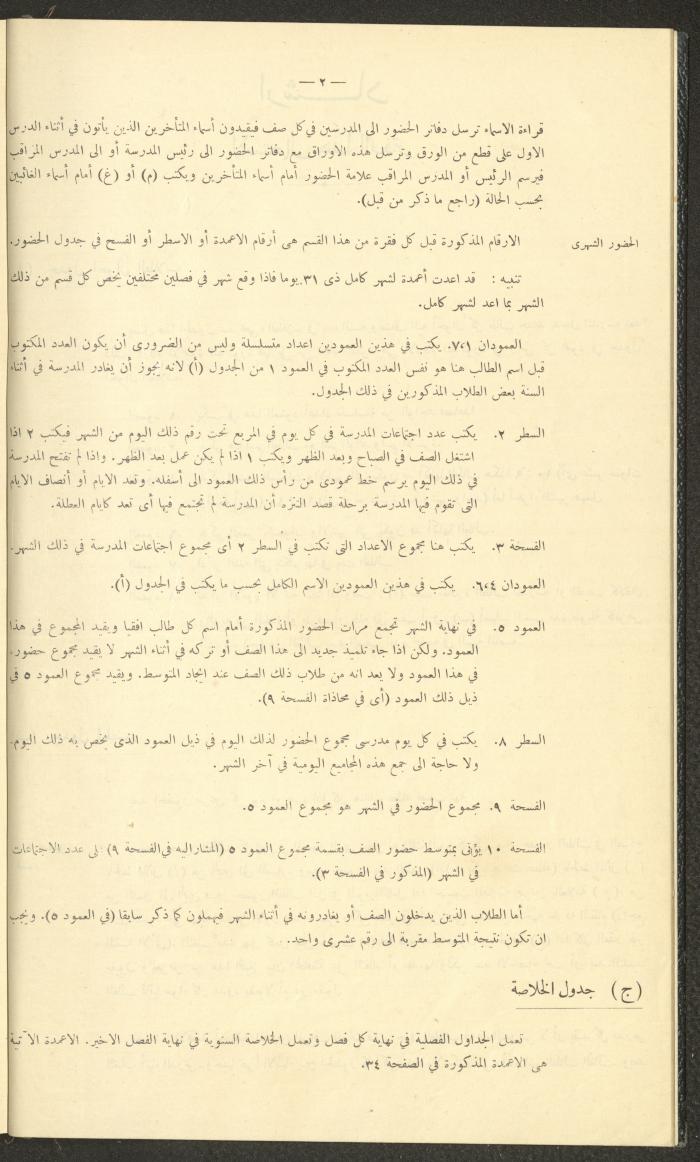 — ٢ —
قراءة الاسماء ترسل دفاتر الحضور الى المدرسين في كل صف فيقيدون أسماء المتأخرين الذين يأتون في أثناء الدرس
الاول على قطع من الورق وترسل هذه الاوراق مع دفاتر الحضور الى رئيس المدرسة أو الى المدرس المراقب
فيرسم الرئيس أو المدرس المراقب علامة الحضور أمام أسماء المتأخرين ويكتب (م) أو (غ) أمام أسماء الغائبين
بحسب الحالة (راجع ما ذكر من قبل).
الحضور الشهرى الارقام المذكورة قبل كل فقرة من هذا القسم هى أرقام الاعمدة أو الاسطر أو الفسح في جدول الحضور.
تنبيه : قد اعدت أعمدة لشهر كامل ذى ٣١ يوما فاذا وقع شهر في فصلين مختلفين يخص كل قسم من ذلك
الشهر بما اعد لشهر كامل.
العمودان ٧،١. يكتب في هذين العمودين اعداد متسلسلة وليس من الضرورى أن يكون العدد المكتوب
قبل اسم الطالب هنا هو نفس العدد المكتوب في العمود ١ من الجدول (أ) لانه يجوز أن يغادر المدرسة في أثناء
السنة بعض الطلاب المذكورين في ذلك الجدول.
السطر ٢. يكتب عدد اجتماعات المدرسة في كل يوم في المربع تحت رقم ذلك اليوم من الشهر فيكتب ٢ اذا
اشتغل الصف في الصباح وبعد الظهر ويكتب ١ اذا لم يكن عمل بعد الظهر. واذا لم تفتح المدرسة
في ذلك اليوم يرسم خط عمودى من رأس ذلك العمود الى أسفله. وتعد الايام أو أنصاف الايام
التى تقوم فيها المدرسة برحلة قصد التنزه أن المدرسة لم تجتمع فيها أى تعد كايام العطلة.
الفسحة ٣. يكتب هنا مجموع الاعداد التى تكتب في السطر ٢ أى مجموع اجتماعات المدرسة في ذلك الشهر.
العمودان ٦،٤. يكتب في هذين العمودين الاسم الكامل بحسب ما يكتب في الجدول (أ).
العمود ٥. في نهاية الشهر تجمع مرات الحضور المذكورة أمام اسم كل طالب افقيا ويقيد المجموع في هذا
العمود. ولكن اذا جاء تلميذ جديد الى هذا الصف أو تركه في أثناء الشهر لا يقيد مجموع حضوره
في هذا العمود ولا يعد انه من طلاب ذلك الصف عند ايجاد المتوسط. ويقيد مجموع العمود ٥ في
ذيل ذلك العمود (أى في محاذاة الفسحة ٩).
السطر ٨. يكتب في كل يوم مدرسى مجموع الحضور لذلك اليوم في ذيل العمود الذى يختص به ذلك اليوم.
ولا حاجة الى جمع هذه المجاميع اليومية في آخر الشهر.
الفسحة ٩. مجموع الحضور في الشهر هو مجموع العمود ٥.
الفسحة ١٠ يؤتى بمتوسط حضور الصف بقسمة مجموع العمود ٥ (المشار اليه في الفسحة ٩) على عدد الاجتماعات
في الشهر (المذكور في الفسحة ٣).
أما الطلاب الذين يدخلون الصف أو يغادرونه في أثناء الشهر فيهملون كما ذكر سابقا (في العمود ٥). ويجب
ان تكون نتيجة المتوسط مقربة الى رقم عشرى واحد.
(ج) جدول الخلاصة
تعمل الجداول الفصلية في نهاية كل فصل وتعمل الخلاصة السنوية في نهاية الفصل الاخير. الاعمدة الآتية
هى الاعمدة المذكورة في الصفحة ٣٤.